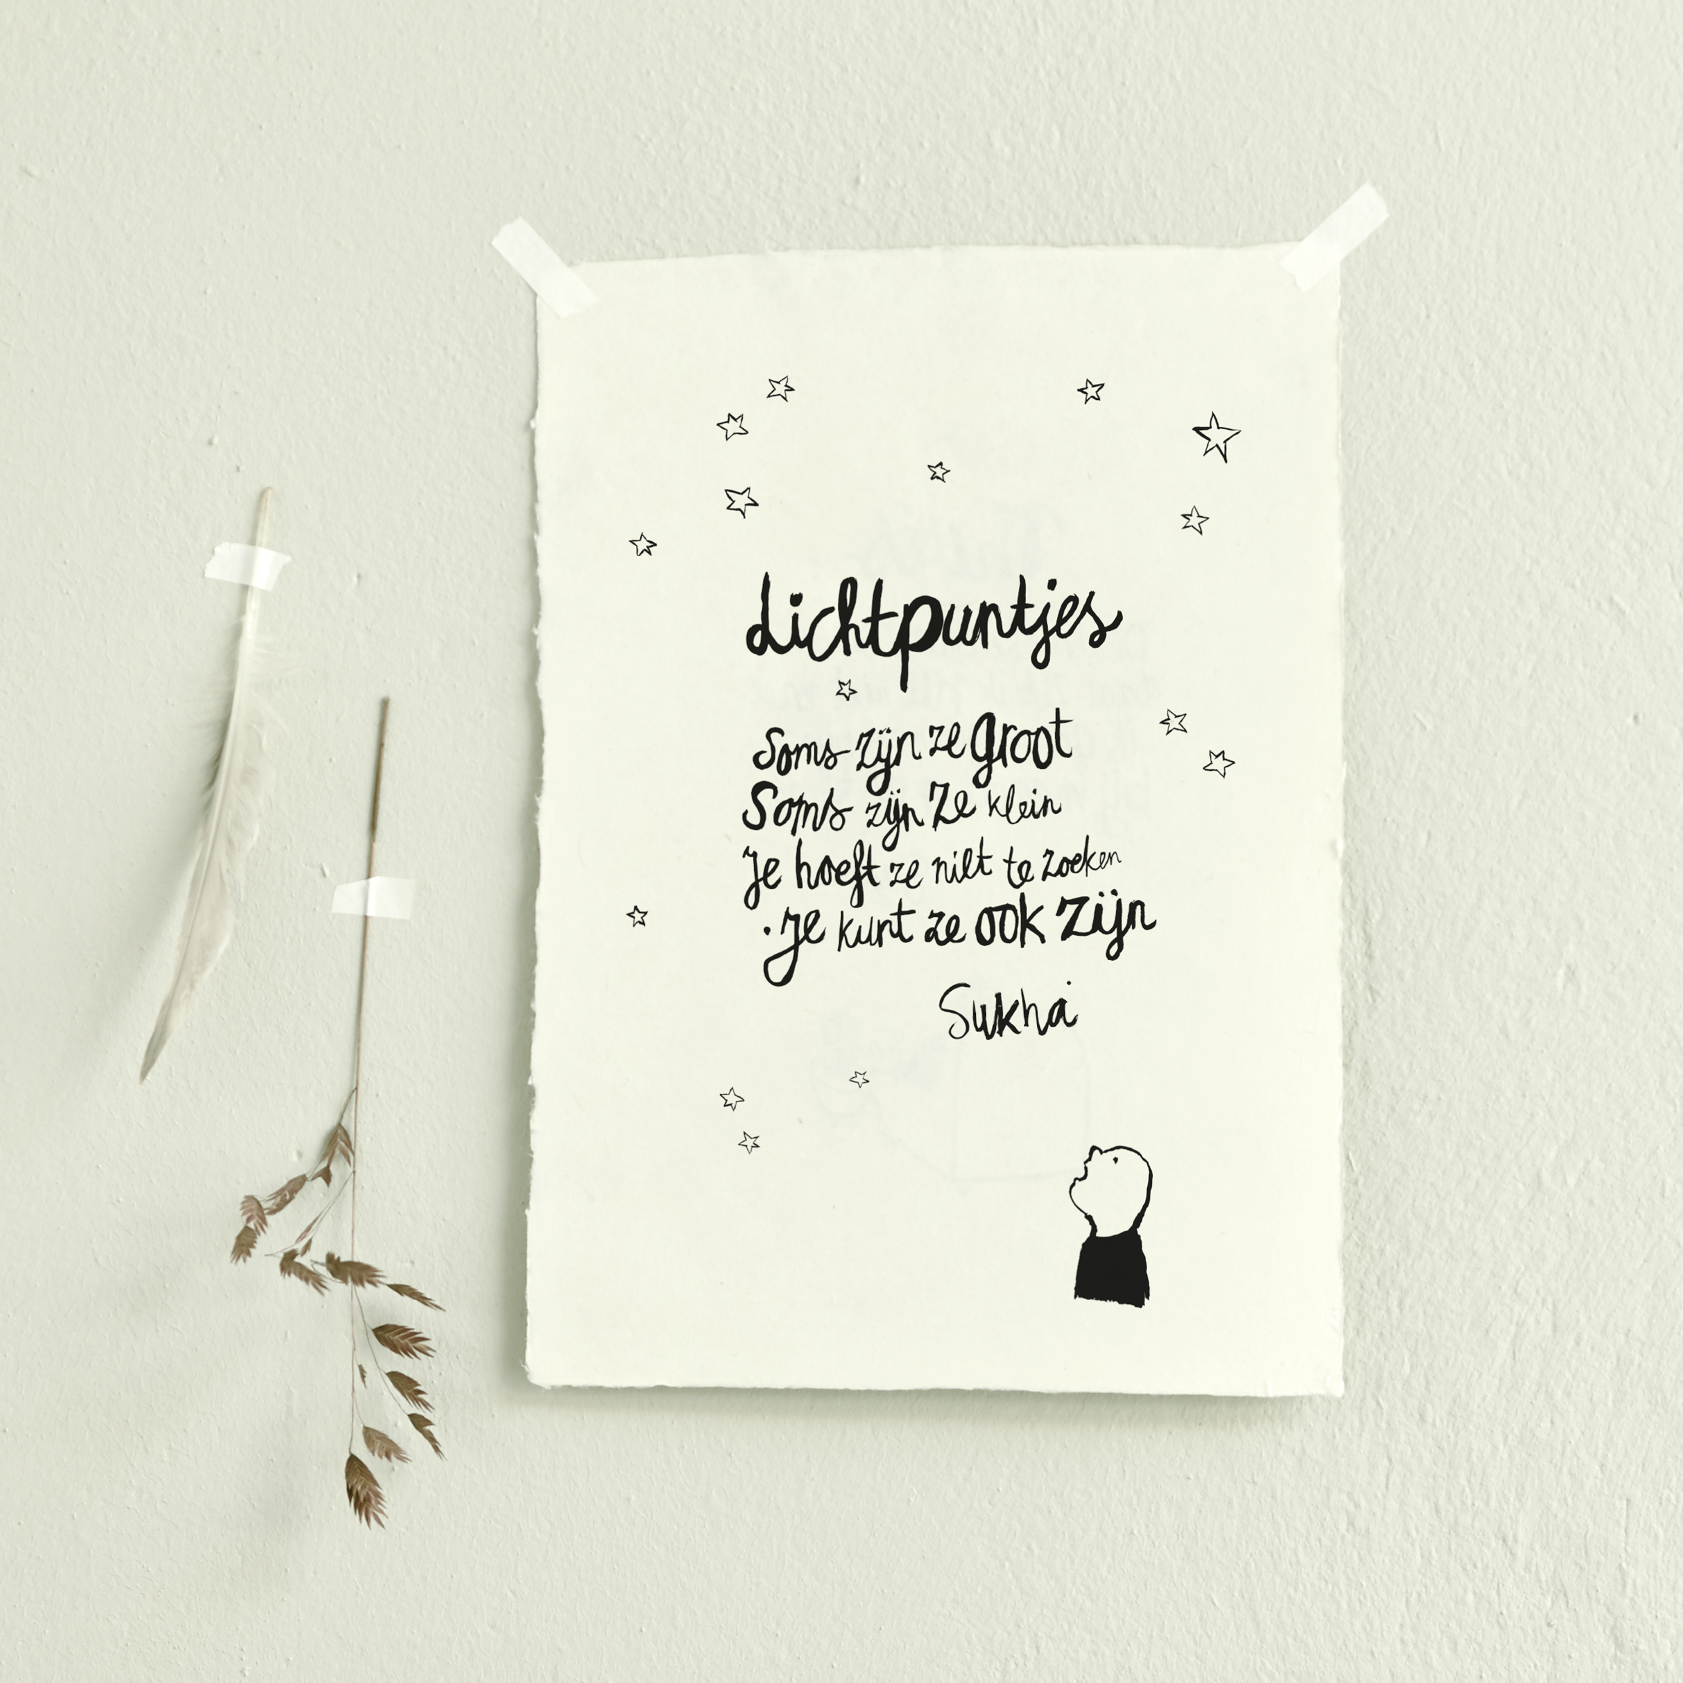 Lichtpuntjes
Soms zijn ze groot
Soms zijn ze klein
Je hoeft ze niet te zoeken
. Je kunt ze ook zijn
Sukha